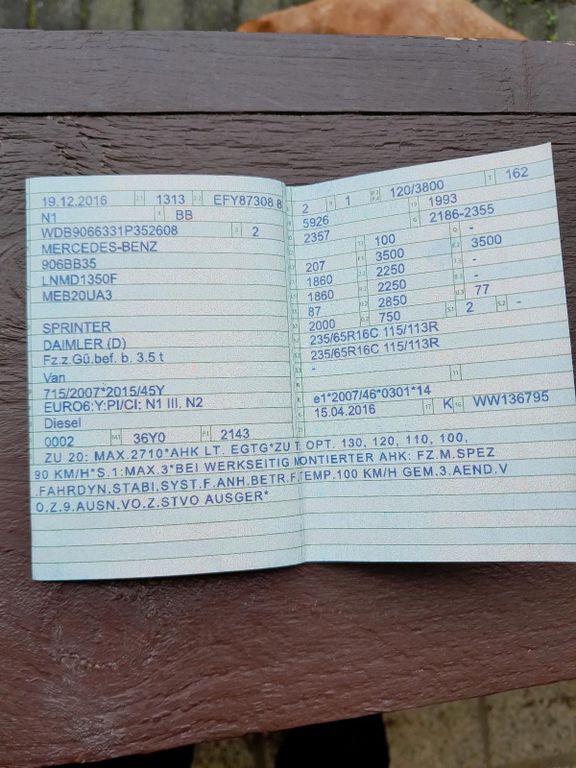 19.12.2016 1313 EFY87308 8
N1 BB
WDB9066331P352608 2
MERCEDES-BENZ
906BB35
LNMD1350F
MEB20UA3
SPRINTER
DAIMLER (D)
Fz.z.Gü.bef. b. 3.5 t
Van
715/2007*2015/45Y
EURO6:Y:PI/CI: N1 III, N2
Diesel
0002 36Y0 2143
2 1 120/3800 162
5926 1993
2357 2186-2355
100 -
207 3500 3500
1860 2250 -
1860 2250 -
87 2850 77
2000 750 2 -
235/65R16C 115/113R
235/65R16C 115/113R
-
e1*2007/46*0301*14
15.04.2016 K WW136795
ZU 20: MAX.2710*AHK LT. EGTG*ZU T OPT. 130, 120, 110, 100,
90 KM/H*S.1:MAX.3*BEI WERKSEITIG MONTIERTER AHK: FZ.M.SPEZ
.FAHRDYN.STABI.SYST.F.ANH.BETR.F.TEMP.100 KM/H GEM.3.AEND.V
O.Z.9.AUSN.VO.Z.STVO AUSGER*